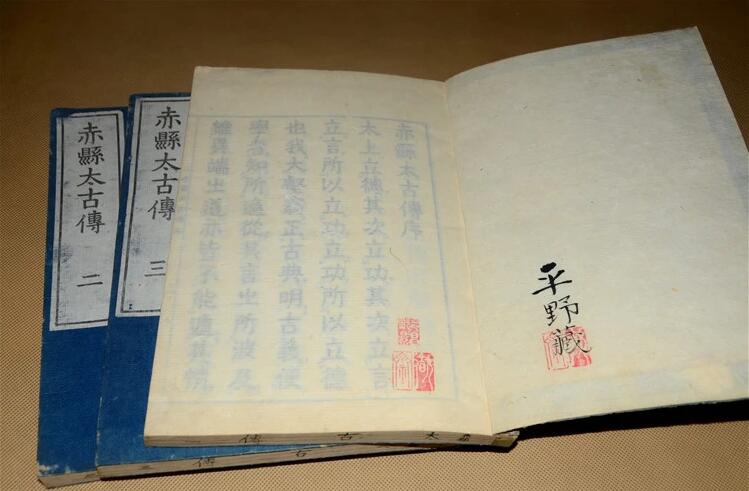 平野藏
赤縣太古傳序
太上立德其次立功其次立言
立言所以立功立功所以立德
也我大壑翁正古典明古義使
學者知所適從其言之所波及
雖異端之道亦皆不能遁其情
赤縣太古傳 三
赤縣太古傳 二
太古傳一
古傳三